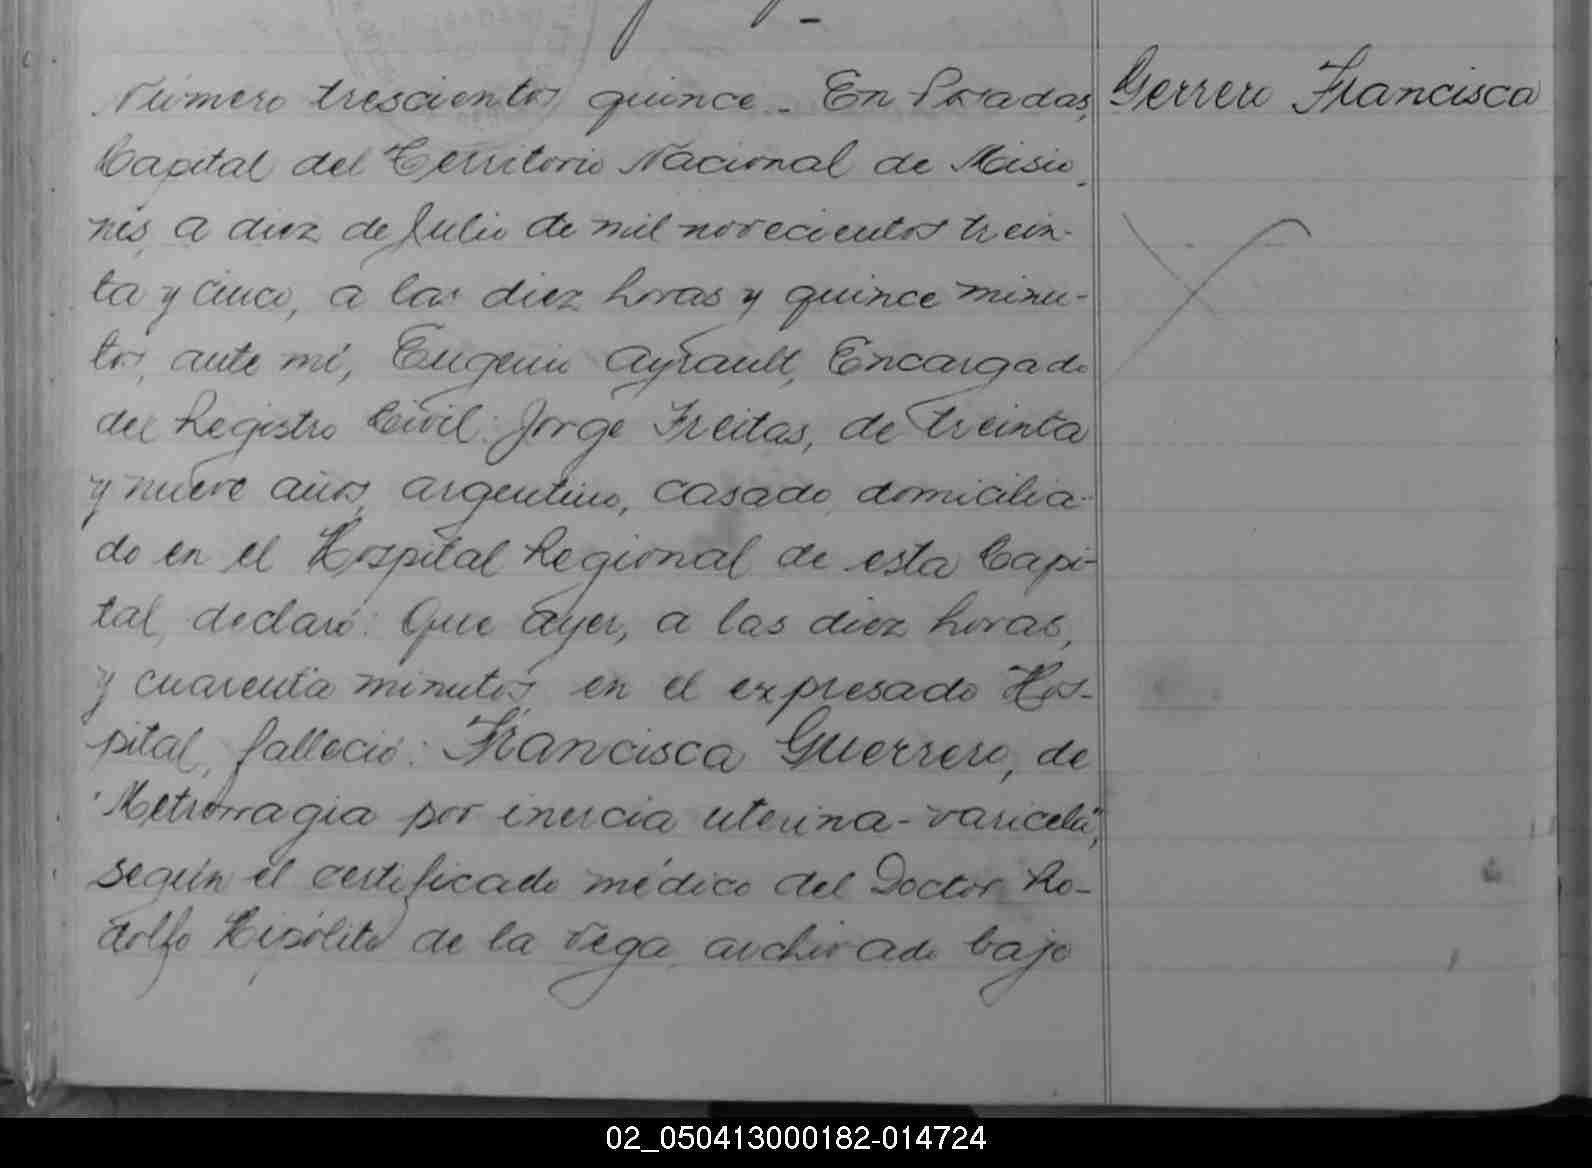 Número trescientos quince _ En Posadas, Gerrero Francisca
Capital del Territorio Nacional de Misio_
nes, a diez de Julio de mil novecientos trein-
ta y cinco, a las diez horas y quince minu-
tos, ante mí, Eugenio Ayrault, Encargado
del Registro Civil: Jorge Freitas, de treinta
y nueve años, argentino, casado, domicilia-
do en el Hospital Regional de esta Capi-
tal, declaró: Que ayer, a las diez horas,
y cuarenta minutos, en el expresado Hos-
pital, falleció: Francisca Guerrero, de
"Metrorragia por inercia uterina-varicela",
según el certificado médico del Doctor Ro-
dolfo Hipólito de la Vega, archivado bajo
02_050413000182-014724